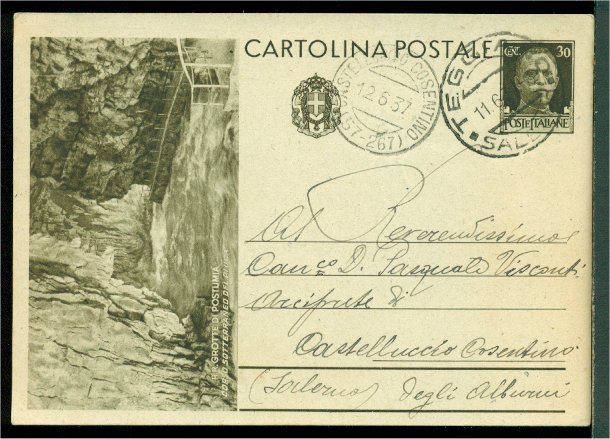 CARTOLINA POSTALE
CENT. 30
POSTE ITALIANE
CASTELLUCCIO COSENTINO
12.6.37
(57-267)
TEGG
11.6
SAL
R.R. GROTTE DI POSTUMIA
Al Reverendissimo
Canco D. Pasquale Visconti
Arciprete di
Castelluccio Cosentino
(Salerno) degli Alburni